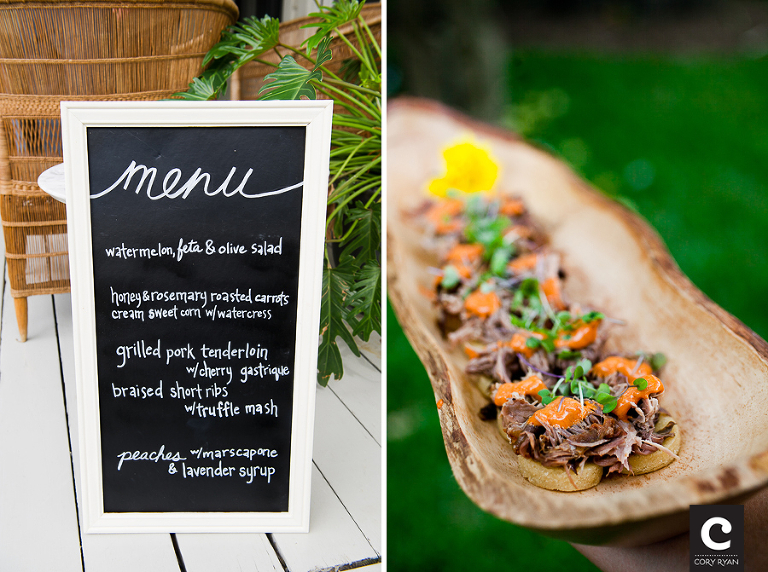 menu
watermelon, feta & olive salad
honey & rosemary roasted carrots
cream sweet corn w/watercress
grilled pork tenderloin
w/cherry gastrique
braised short ribs
w/truffle mash
peaches w/marscapone
& lavender syrup
C
CORY RYAN